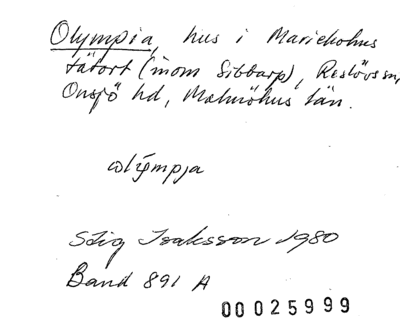 Olympia, hus i Marieholms
tätort (inom Sibbarp), Reslövs sn,
Onsjö hd, Malmöhus län.
ωlýmpja
Stig Isaksson 1980
Band 891 A
00025999